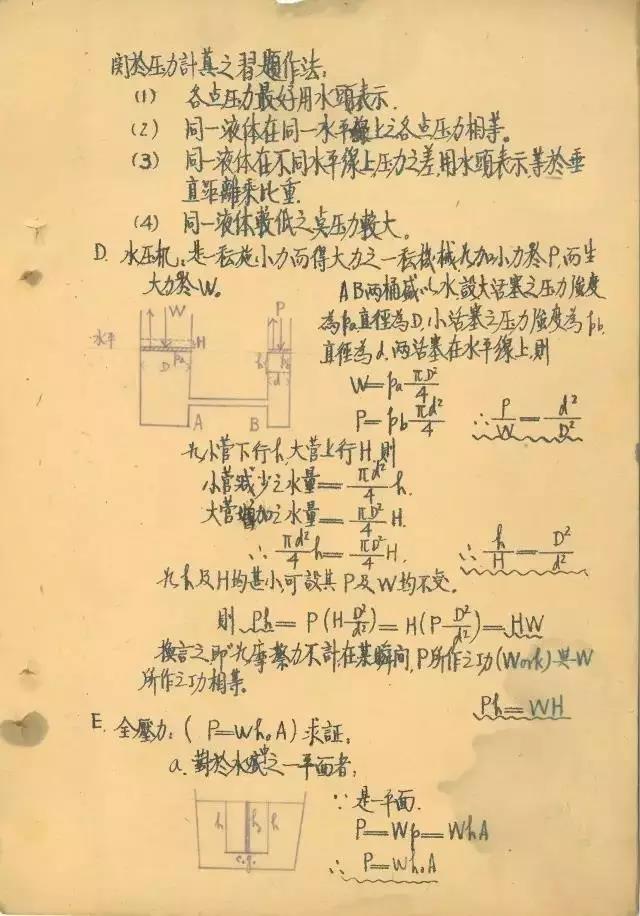 関於压力計算之習題作法:
(1) 各点压力最好用水頭表示.
(2) 同一液体在同一水平線上之各点压力相等。
(3) 同一液体在不同水平線上,压力之差,用水頭表示,等於垂
直距離乘比重.
(4) 同一液体較低之点压力較大。
D. 水压机,是一种施小力而得大力之一种機械,如加小力為P,而生
大力為W。
AB两桶盛以水,設大活塞之压力强度
為pa,直徑為D,小活塞之压力强度為pb,
直徑為d,两活塞在水平線上,則
W P
水平 H h h
pa D d
A B
W=pa πD²/4
P=pb πd²/4 ∴ P/W = d²/D²
如小管下行h,大管上行H,則
小管減少之水量= πd²/4 h.
大管增加之水量= πD²/4 H.
∴ πd²/4 h = πD²/4 H. ∴ h/H = D²/d²
如h及H均甚小,可設其P及W均不变。
則 Ph = P(H D²/d²) = H(P D²/d²) = HW
換言之,即如摩擦力不計,在某瞬间,P所作之功(Work)與W
所作之功相等。
Ph=WH
E. 全壓力:( P=Wh₀A) 求証:
a. 對於水中之一平面者:
h h₀ h
c.g.
∵ 是平面.
P=Wp=WhA
∴ P=Wh₀A